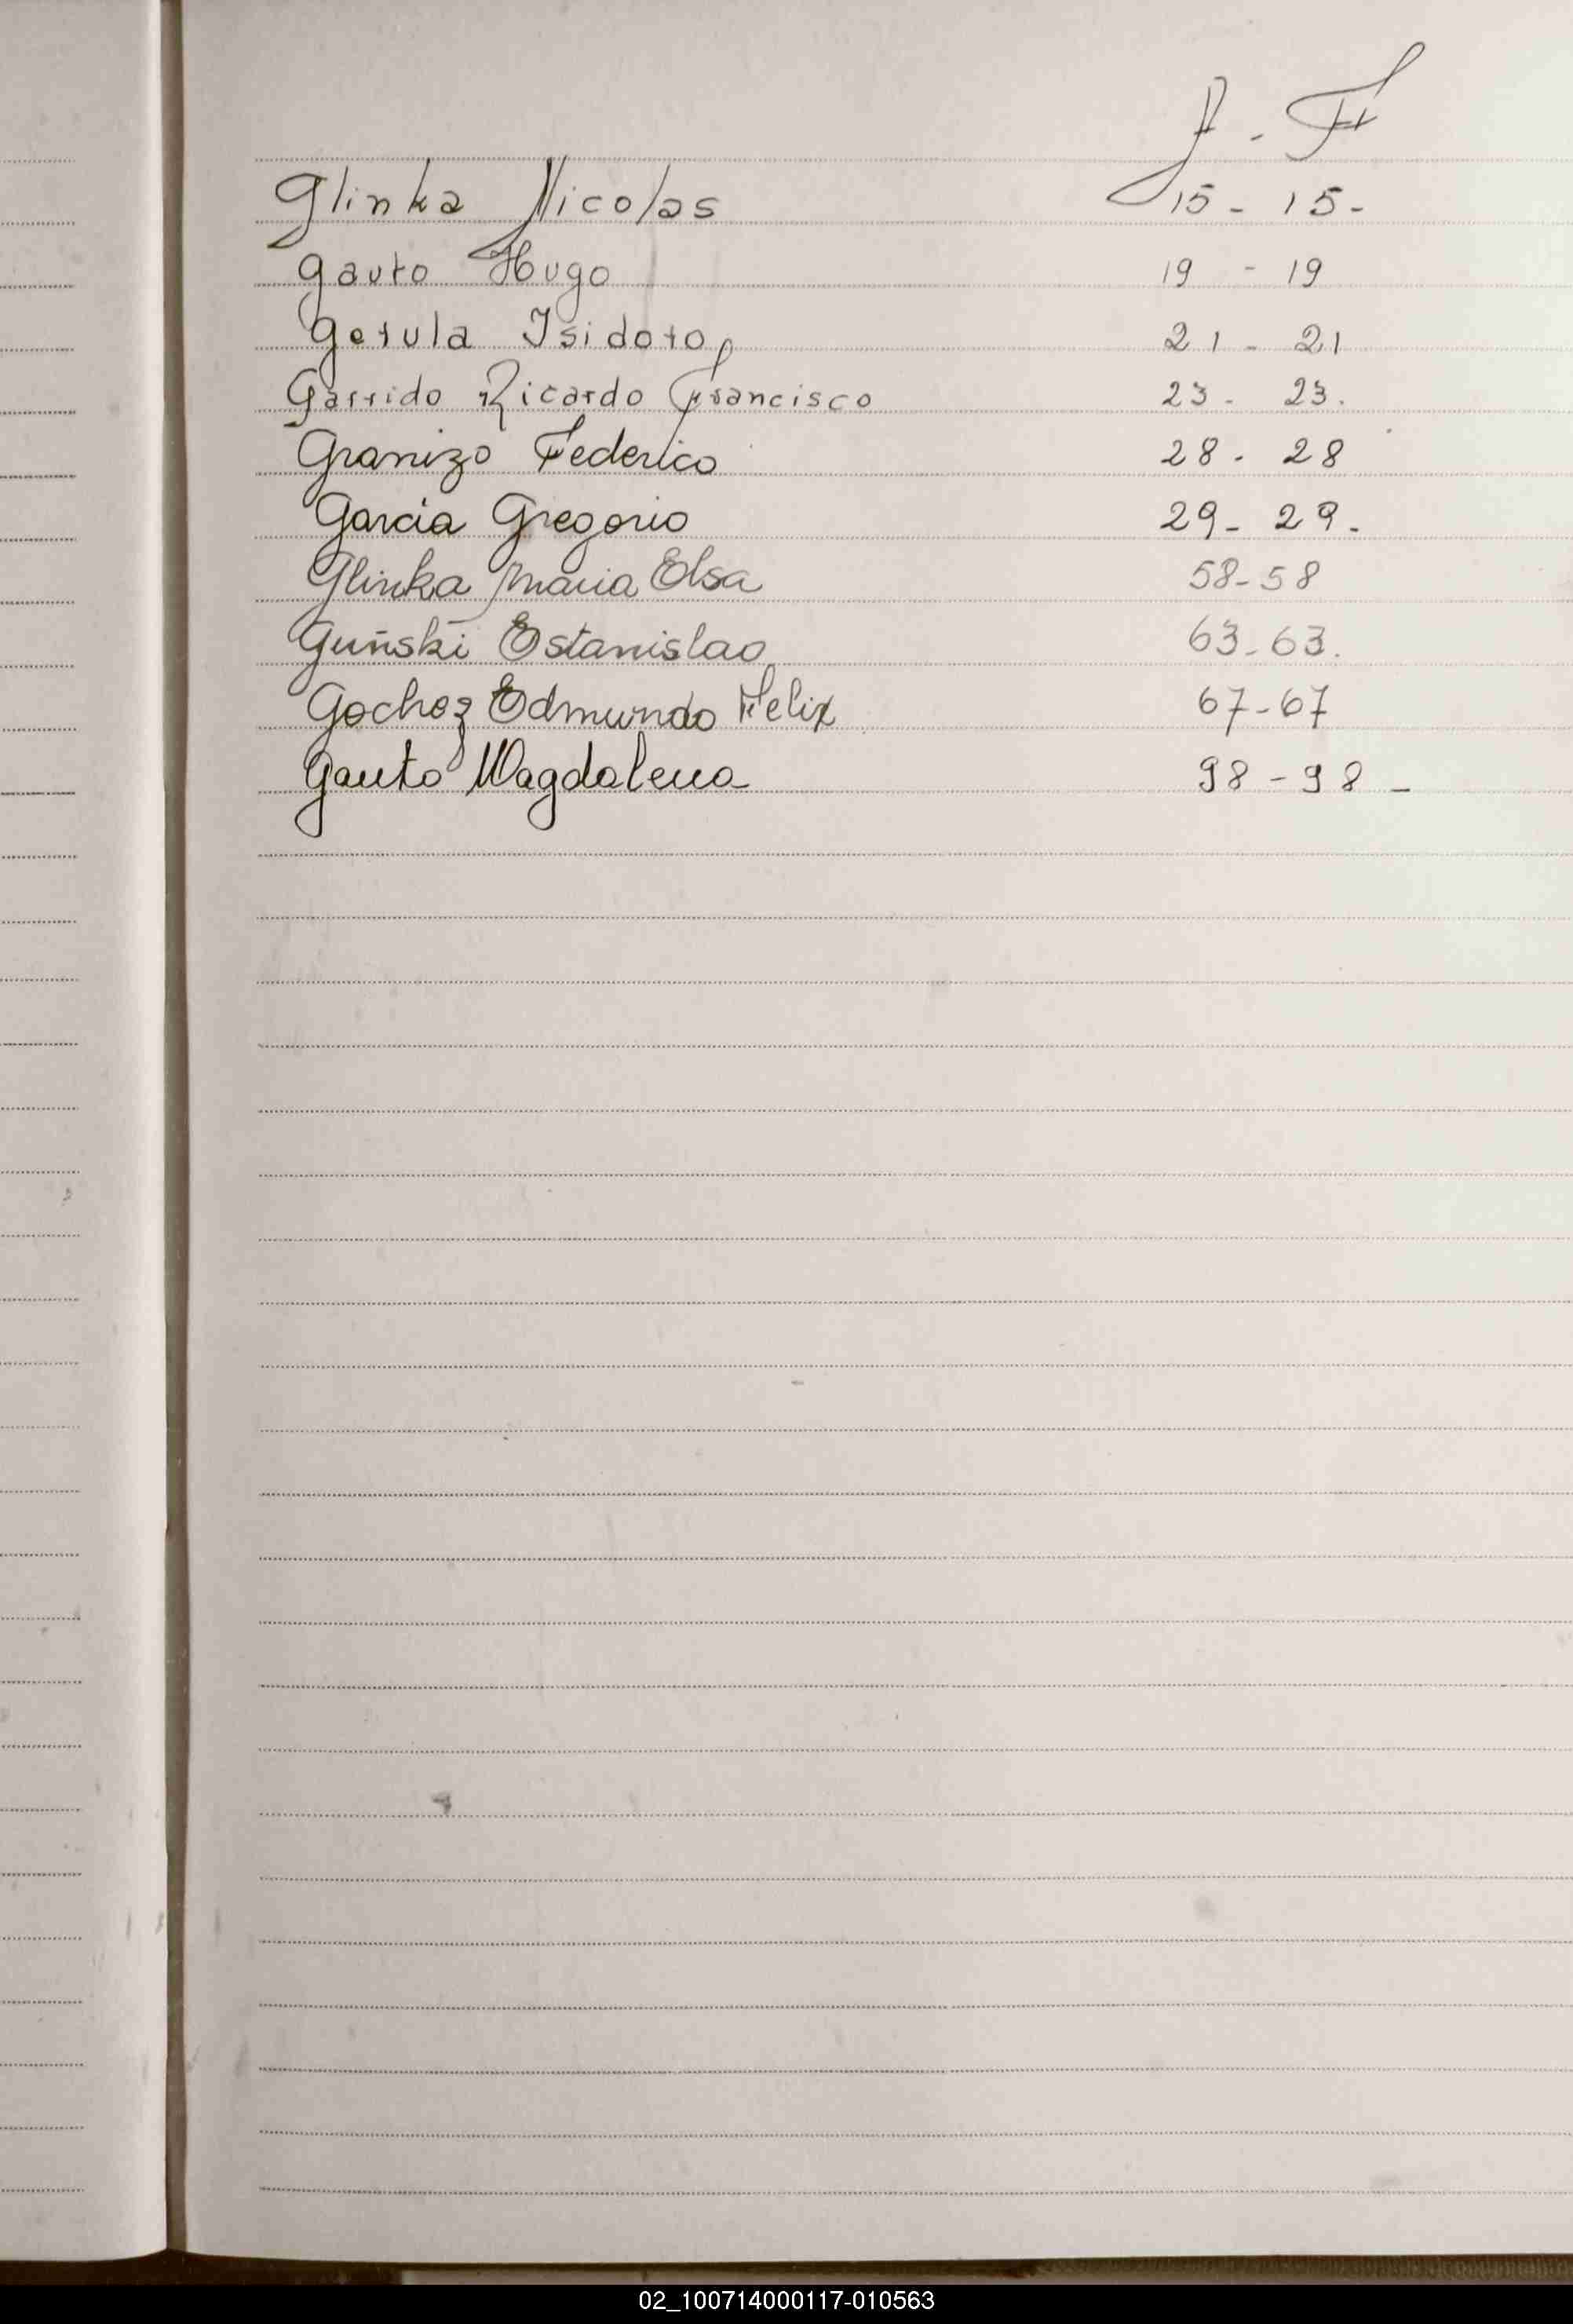 A - F
Glinka Nicolas 15 - 15 -
Gauto Hugo 19 - 19
Gerula Isidoro 21 - 21
Garrido Ricardo Francisco 23 - 23.
Granizo Federico 28 - 28
Garcia Gregorio 29 - 29 -
Glinka Maria Elsa 58 - 58
Guñski Estanislao 63 - 63.
Gochez Edmundo Felix 67 - 67
Gauto Magdalena 98 - 98 -
02_100714000117-010563